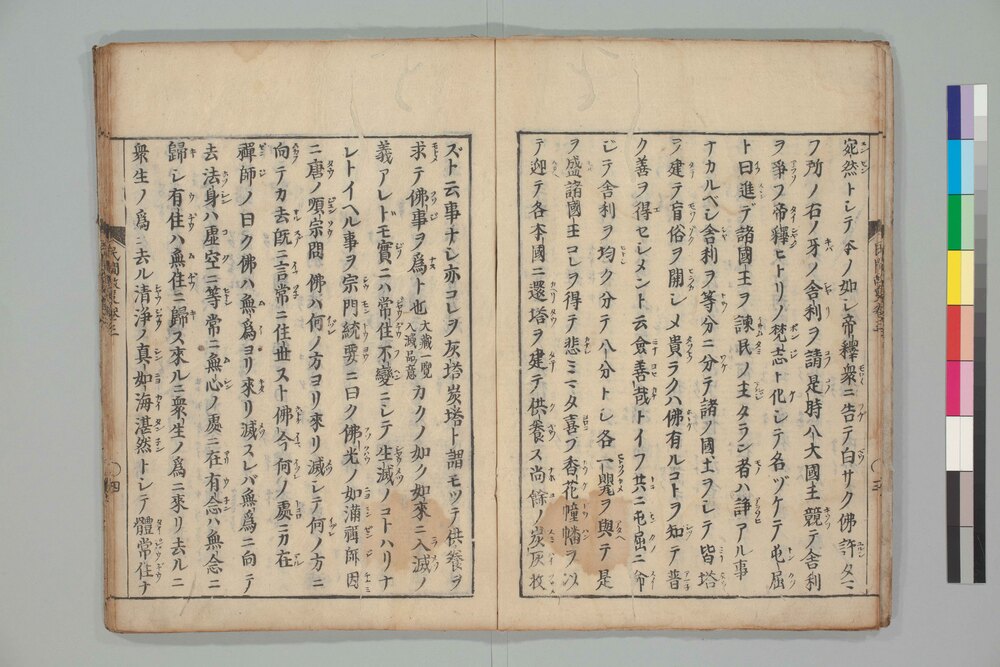 宛然トシテ本ノ如シ帝釋衆ニ告テ白サク佛許タマ
フ所ノ右ノ牙ノ舍利ヲ請是時八大國王競テ舍利
ヲ爭フ帝釋ヒトリノ梵志ト化シテ名ヅケテ屯屈
ト曰進デ諸國王ヲ諫民ノ主タラン者ハ諍アル事
ナカルベシ舍利ヲ等分ニ分テ諸ノ國土ヲシテ皆塔
ヲ建テ盲俗ヲ開シメ貴ラクハ佛有ルコトヲ知テ普
ク善ヲ得セシメント云僉善哉トイフ共ニ屯屈ニ命
ジテ舍利ヲ均ク分テ八分トシ各一甖ヲ與テ是
ヲ盛諸國王コレヲ得テ悲ミマタ喜フ香花幢幡ヲ以
テ迎テ各本國ニ還塔ヲ建テ供養ス尚餘ノ炭灰枚
ズト云事ナシ亦コレヲ灰塔炭塔ト謂モツテ供養ヲ
求テ佛事ヲ爲ト也大藏一覽入滅品意カクノ如ク如來ニ入滅ノ
義アレトモ實ニハ常住不變ニシテ生滅ノコトハリナ
シトイヘル事ヲ宗門統要ニ曰ク佛光ノ如滿禪師因
ニ唐ノ順宗問佛ハ何ノ方ヨリ來リ滅シテ何ノ方ニ
向テカ去既ニ言常ニ住世スト佛今何ノ處ニカ在
禪師ノ曰ク佛ハ無爲ヨリ來リ滅スレバ無爲ニ向テ
去法身ハ虛空ニ等常ニ無心ノ處ニ在有念ハ無念ニ
歸シ有住ハ無住ニ歸ス來ルニ衆生ノ爲ニ來リ去ルニ
衆生ノ爲ニ去ル清淨ノ真如海湛然トシテ體常住ナ